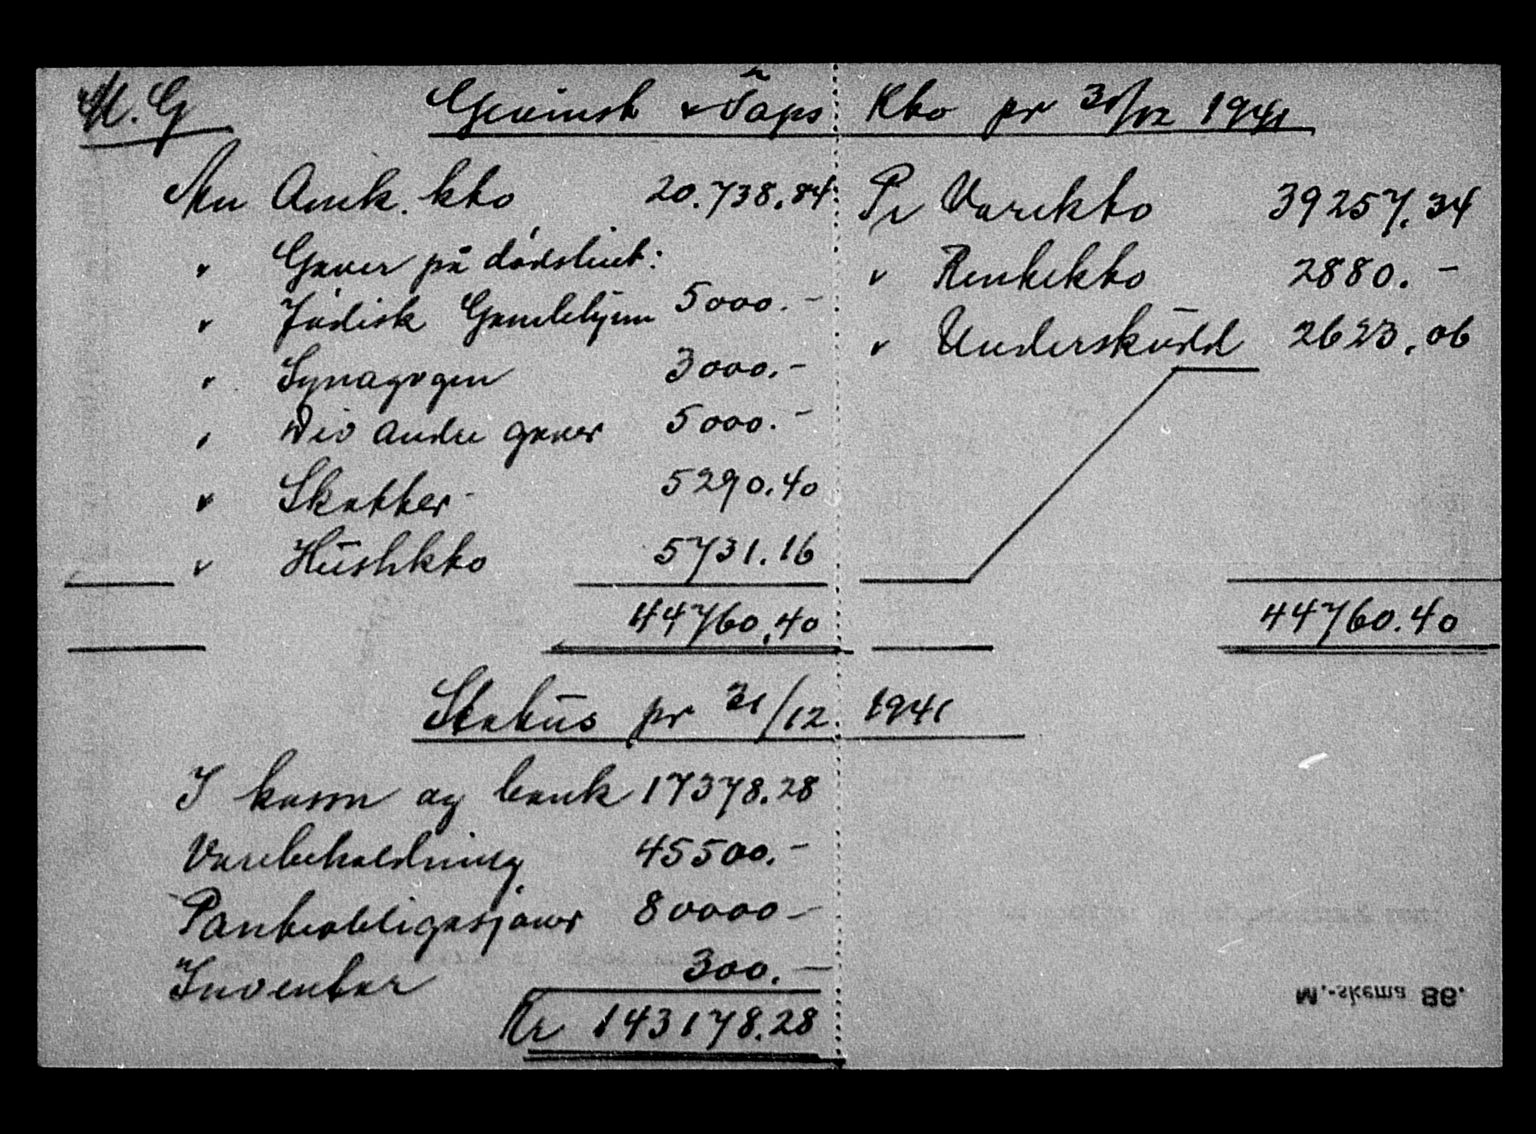 M.G
Gevinst & Taps Kto pr 31/12 1941
An Omk. kto 20.738.84
" Gaver på dødsleiet:
" Jødisk Gamlehjem 5000.-
" Synagogen 3000.-
" Div andre gaver 5000.-
" Skatter 5290.40
" Hushkto 5731.16
44760.40
Pr Varekto 39257.34
" Rentekto 2880.-
" Underskudd 2623.06
44760.40
Status pr 31/12 1941
I kassa og bank 17378.28
Varebeholdning 45500.-
Panteobligasjoner 80000-
Inventar 300.-
Kr 143178.28
M.-skema 86.